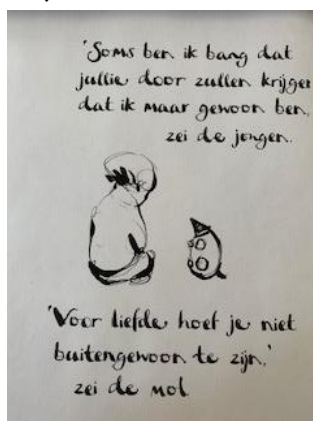 'Soms ben ik bang dat
jullie door zullen krijgen
dat ik maar gewoon ben,
zei de jongen.
'Voor liefde hoef je niet
buitengewoon te zijn.'
zei de mol